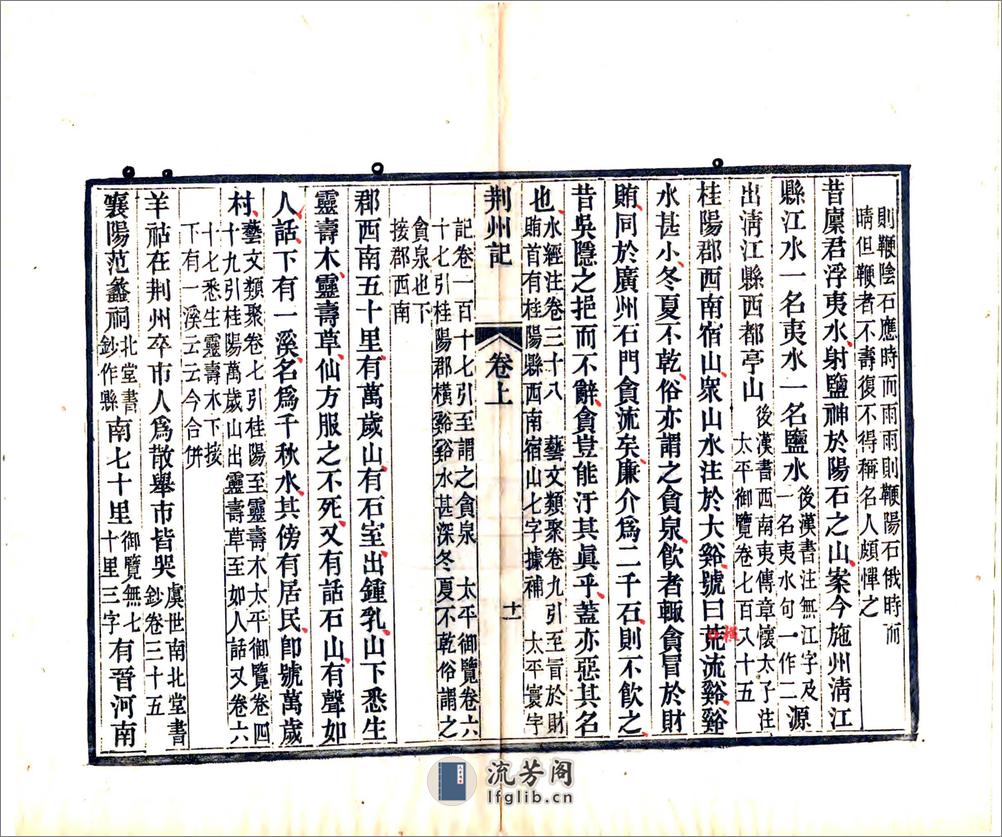 則鞭陰石應時而雨雨則鞭陽石俄時而
晴但鞭者不壽復不得稱名人頗憚之
昔廩君浮夷水射鹽神於陽石之山案今施州清江
縣江水一名夷水一名鹽水後漢書注無江字及一名夷水句一作二源
出清江縣西都亭山後漢書西南夷傳章懷太子注太平御覽卷七百八十五
桂陽郡西南宿山衆山水注於大谿號曰荒流谿谿
橫口
水甚小冬夏不乾俗亦謂之貪泉飲者輒貪冒於財
賄同於廣州石門貪流矣廉介爲二千石則不飲之
昔吳隱之挹而不辭貪豈能汙其眞乎蓋亦惡其名
也水經注卷三十八　藝文類聚卷九引至冒於財賄首有桂陽縣西南宿山七字據補　太平寰宇
荆州記　卷上　十一
記卷一百十七引至謂之貪泉　太平御覽卷六
十七引桂陽郡橫谿谿水甚深冬夏不乾俗謂之
貪泉也下
接郡西南
郡西南五十里有萬歲山有石室出鍾乳山下悉生
靈壽木靈壽草仙方服之不死又有話石山有聲如
人話下有一溪名爲千秋水其傍有居民即號萬歲
村藝文類聚卷七引桂陽至靈壽木太平御覽卷四十九引桂陽萬歲山出靈壽草至如人話又卷六
十七悉生靈壽木下接
下有一溪云云今合併
羊祜在荆州卒市人爲散舉市皆哭虞世南北堂書鈔卷三十五
襄陽范蠡祠北堂書鈔作縣南七十里御覽無七十里三字有晉河南
流芳阁
lfglib.cn